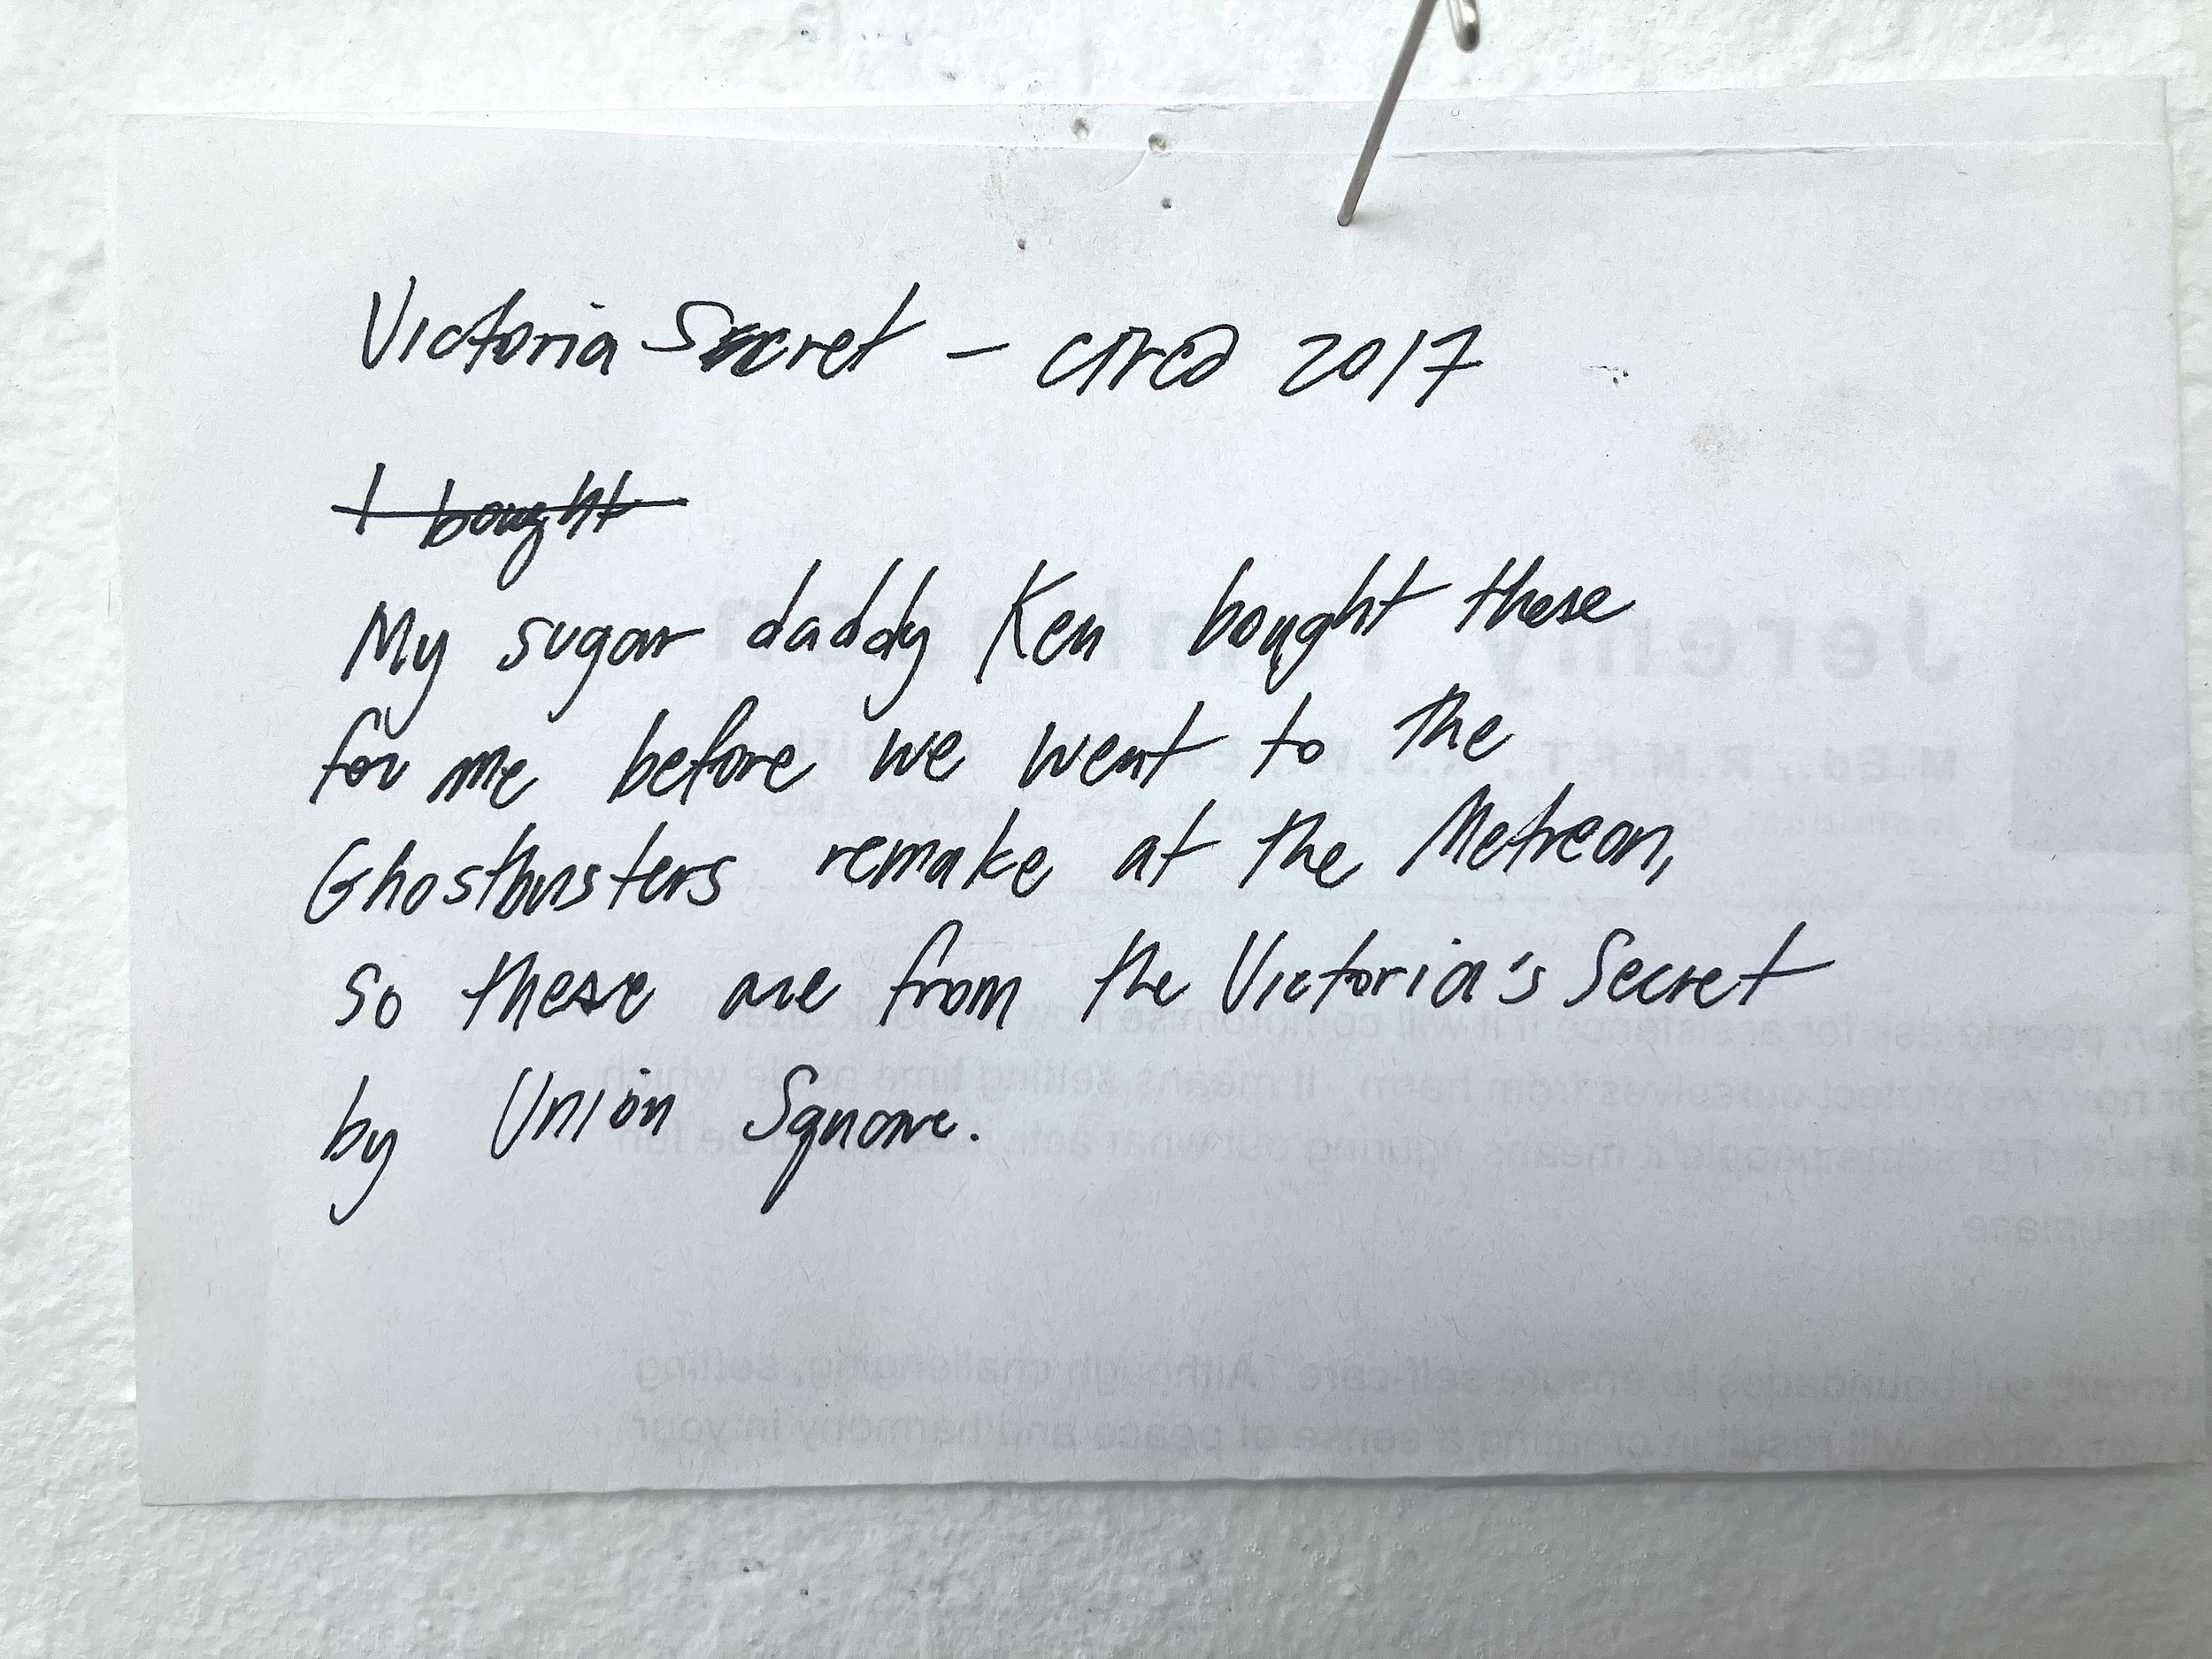 Victoria Secret – circa 2017
I bought
My sugar daddy Ken bought these
for me before we went to the
Ghostbusters remake at the Metreon,
so these are from the Victoria's Secret
by Union Square.